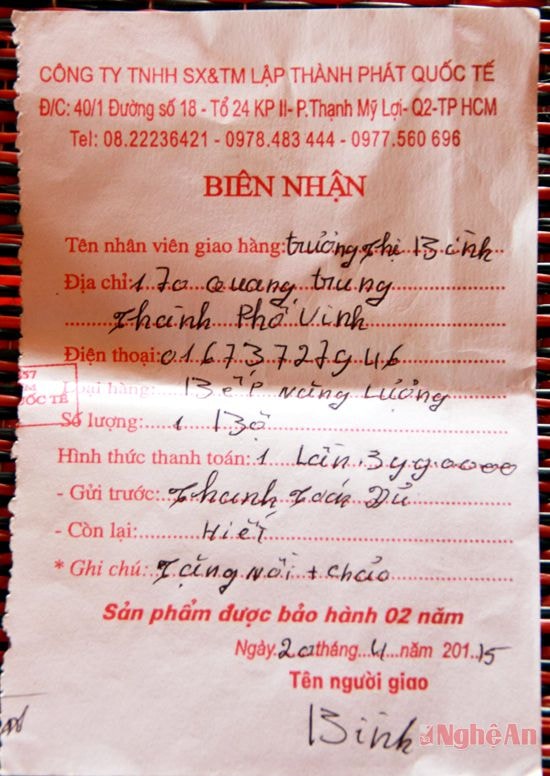 CÔNG TY TNHH SX&TM LẬP THÀNH PHÁT QUỐC TẾ
Đ/C: 40/1 Đường số 18 - Tổ 24 KP II- P.Thạnh Mỹ Lợi- Q2-TP HCM
Tel: 08.22236421 - 0978.483 444 - 0977.560 696
BIÊN NHẬN
Tên nhân viên giao hàng: trương thị Bình
Địa chỉ: 170 quang trung
thành Phố Vinh
Điện thoại: 01673727946
Loại hàng: Bếp năng lượng
Số lượng: 1 Bộ
Hình thức thanh toán: 1 Lần 3990000
- Gửi trước: thanh toán Đủ
- Còn lại: Hiết
* Ghi chú: tặng nồi + chảo
Sản phẩm được bảo hành 02 năm
Ngày 20 tháng 4 năm 201 15
Tên người giao
Bình
NghệAn
57
QUỐC TẾ